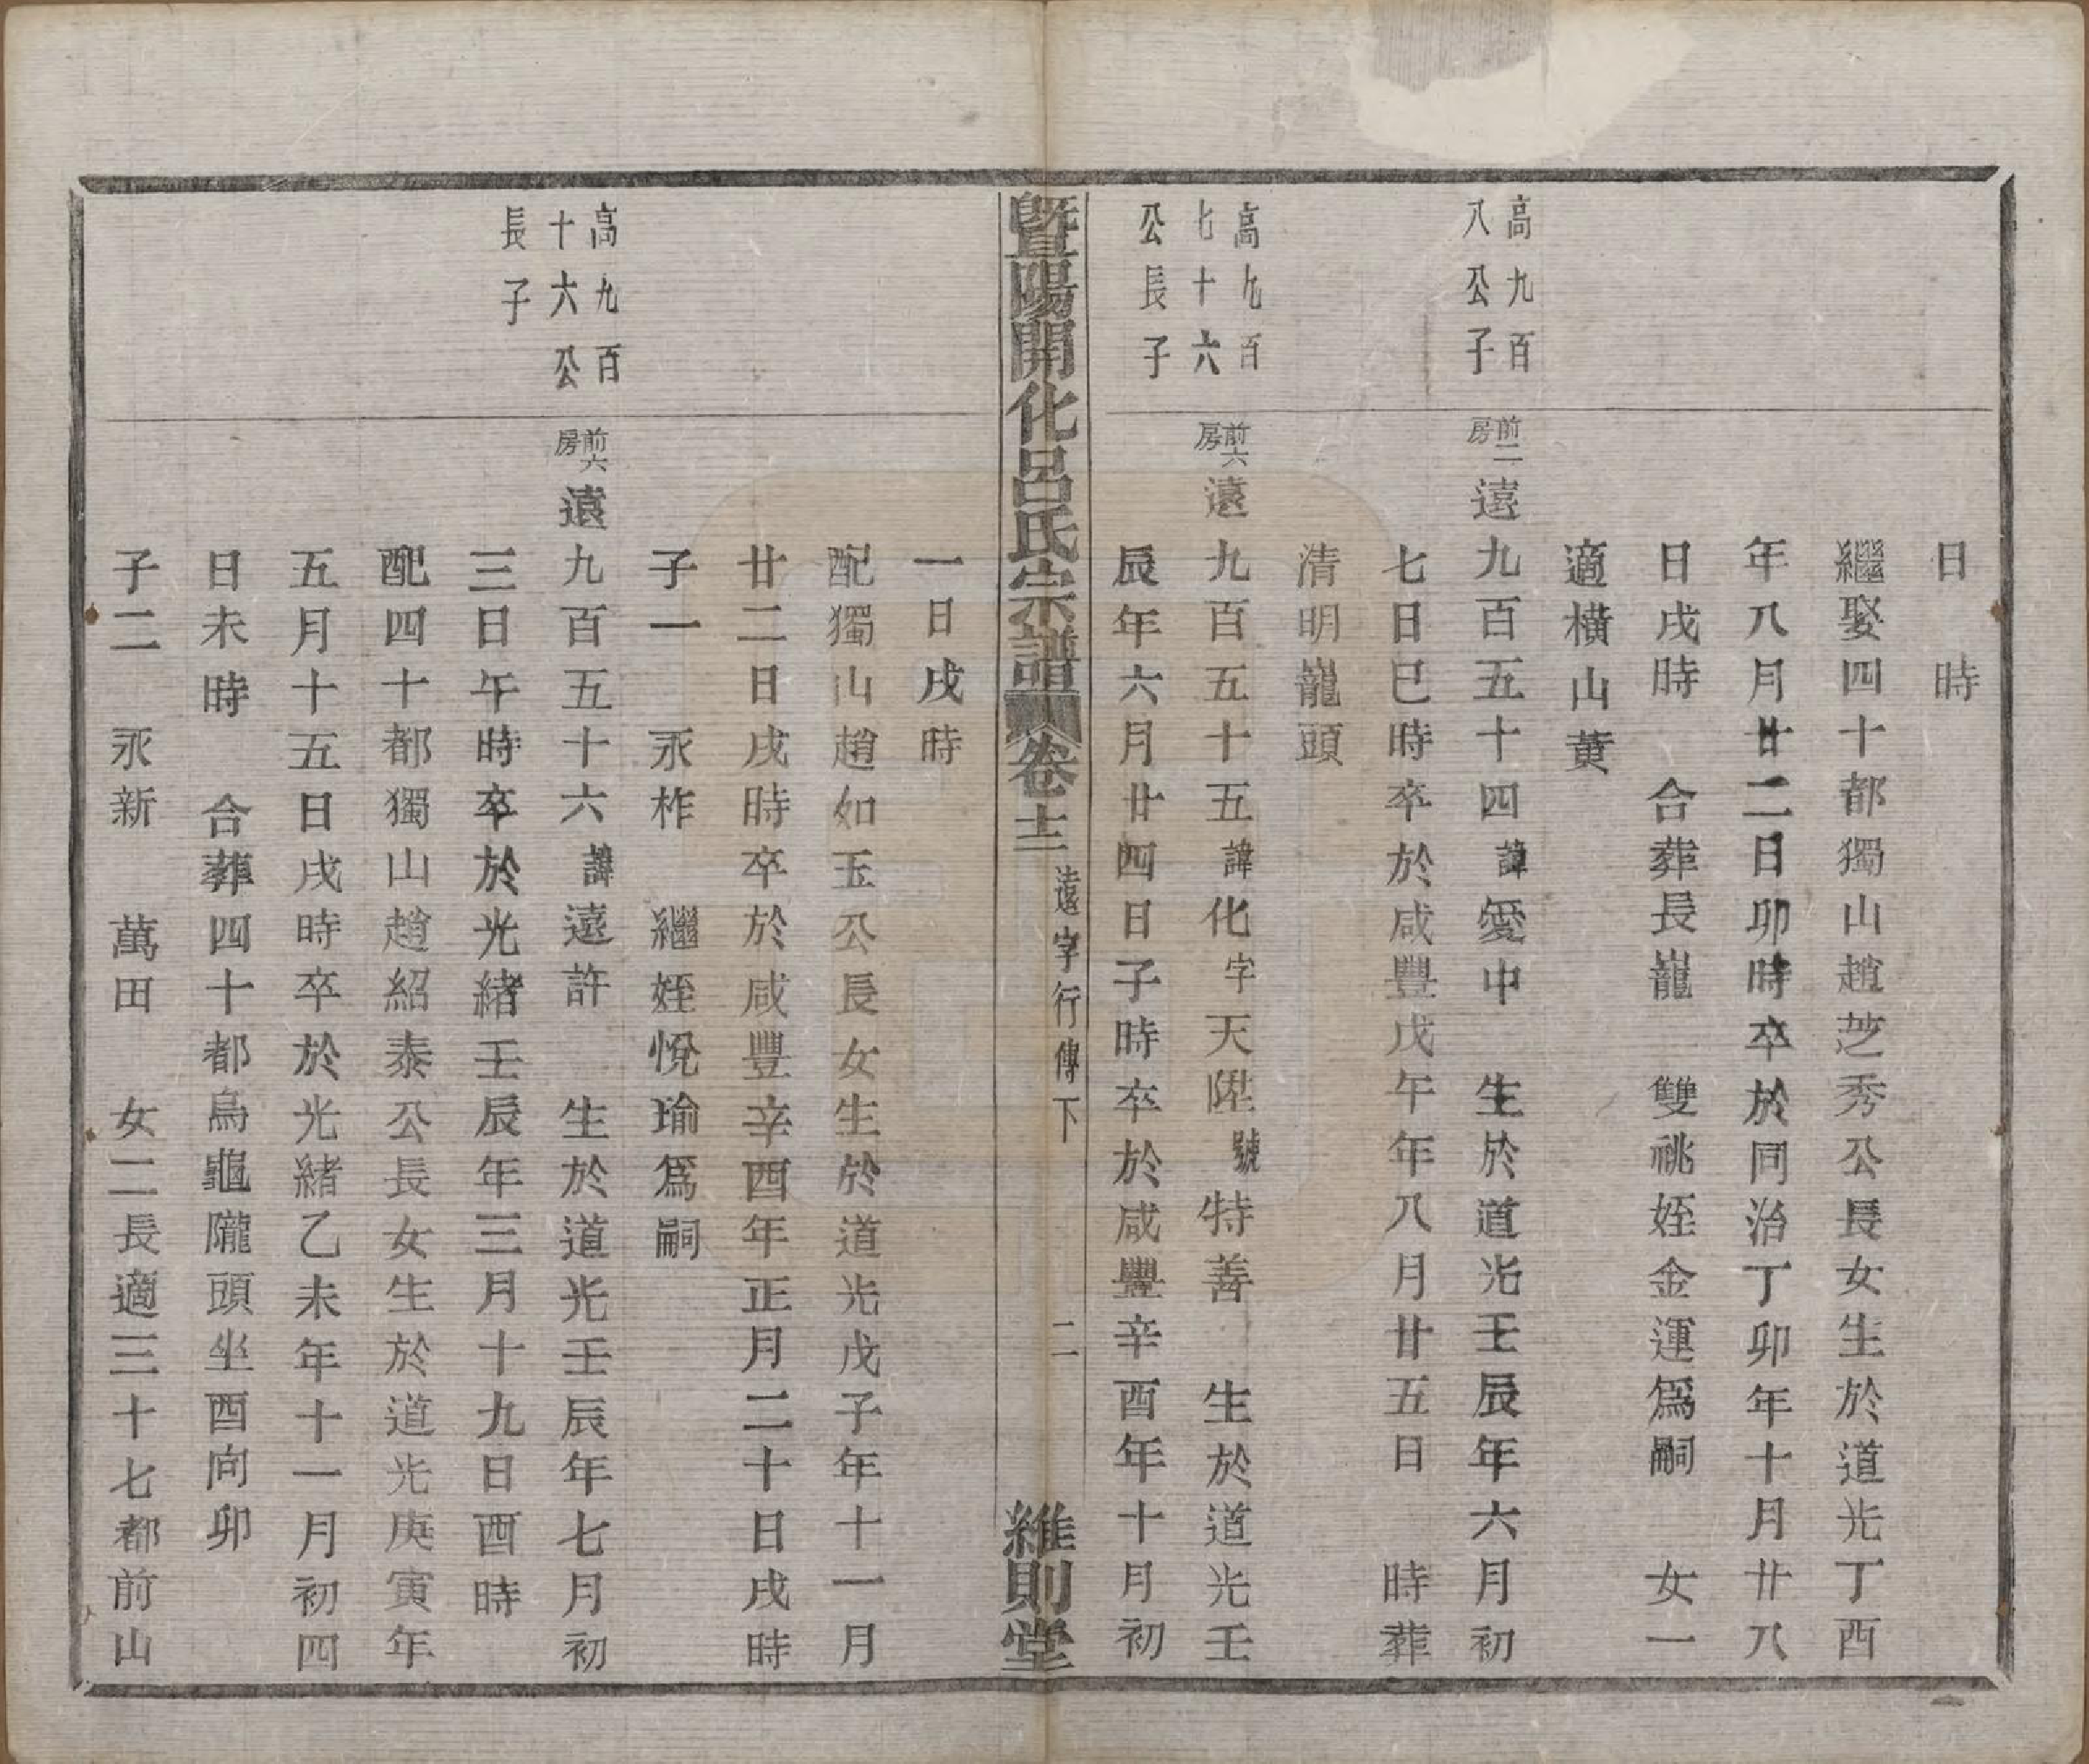 日　時
繼娶四十都獨山趙芝秀公長女生於道光丁酉
年八月廿二日卯時卒於同治丁卯年十月廿八
日戌時　合葬長巃　雙祧姪金運為嗣　女一
適橫山黄
高九百
八公子
前二房
遠九百五十四諱愛中　生於道光壬辰年六月初
七日巳時卒於咸豐戊午年八月廿五日　時葬
清明巃頭
高九百
七十六
公長子
前六房
遠九百五十五諱化字天陞號特善　生於道光壬
辰年六月廿四日子時卒於咸豐辛酉年十月初
暨陽開化呂氏宗譜
卷十二
遠字行傳下
二
維則堂
一日戌時
配獨山趙如玉公長女生於道光戊子年十一月
廿二日戌時卒於咸豐辛酉年正月二十日戌時
子一　永柞　繼姪悅瑜為嗣
高九百
十六公
長子
前六房
遠九百五十六諱遠許　生於道光壬辰年七月初
三日午時卒於光緒壬辰年三月十九日酉時
配四十都獨山趙紹泰公長女生於道光庚寅年
五月十五日戌時卒於光緒乙未年十一月初四
日未時　合葬四十都烏龜隴頭坐酉向卯
子二　永新　萬田　女二長適三十七都前山